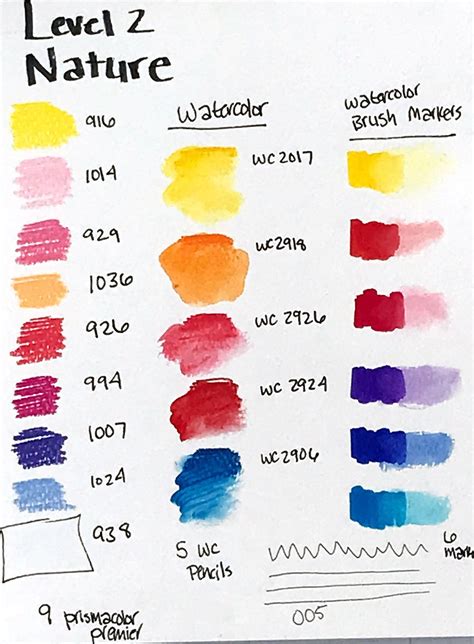 Level 2
Nature
916
1014
929
1036
926
994
1007
1024
938
9 prismacolor
premier
Watercolor
WC2017
WC2918
WC 2926
WC 2924
WC2906
5 WC
Pencils
Watercolor
Brush Markers
6
mark
005